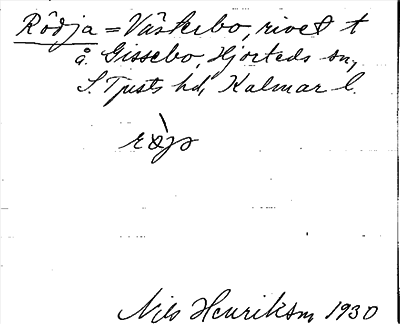 Rödja = Väskebo, rivet t
å. Gissebo, Hjorteds sn,
S. Tjusts hd, Kalmar l.
Nils Henriksm 1930